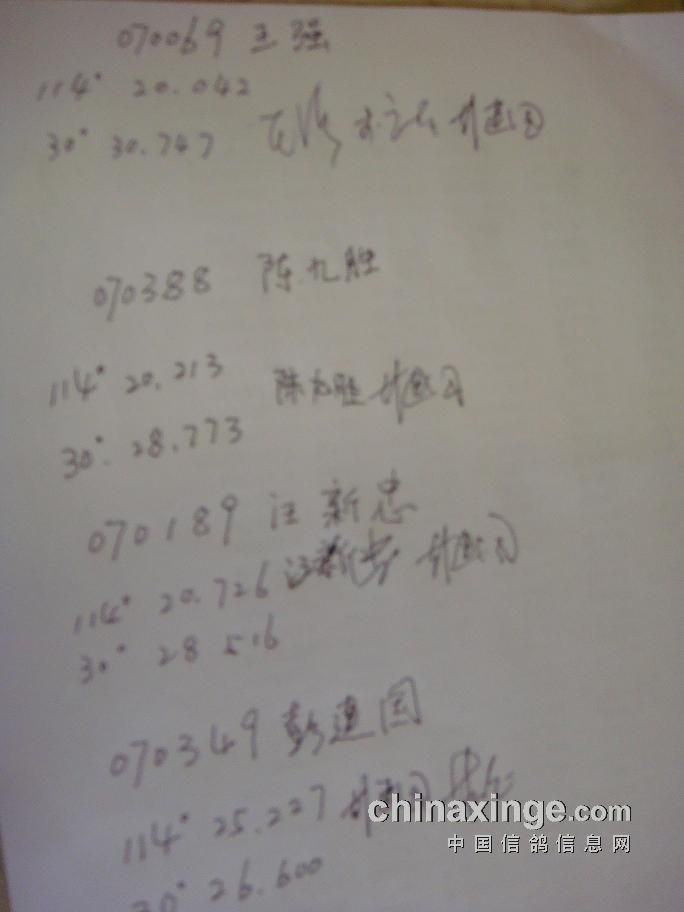 070069 王强
114° 20.042
30° 30.747
070388 陈九胜
114° 20.213
陈九胜
30°. 28.773
070189 汪新忠
114° 20.726 汪新忠
30° 28 516
070349 彭建国
114° 25.227
30° 26.600
chinaxinge.com
中国信鸽信息网